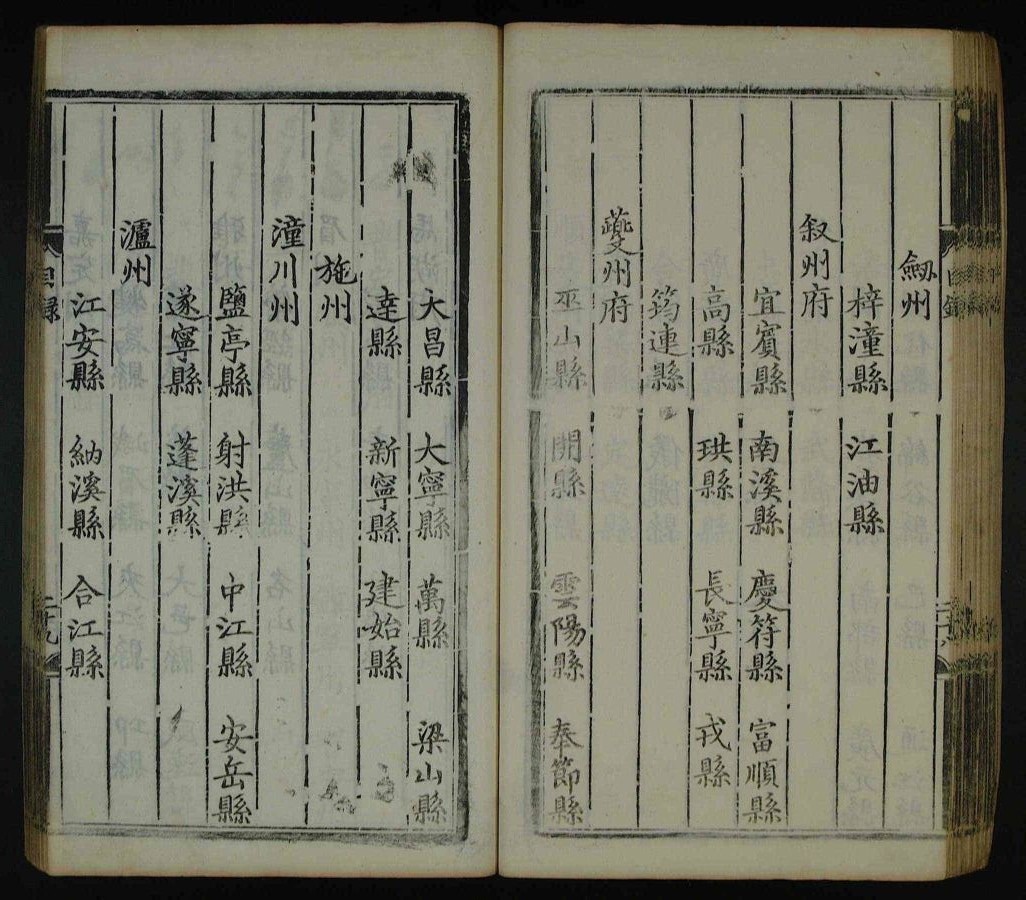 劒州
梓潼縣 江油縣
叙州府
宜賓縣 南溪縣 慶符縣 富順縣
高縣 珙縣 長寧縣 戎縣
筠連縣
夔州府
巫山縣 開縣 雲陽縣 奉節縣
大昌縣 大寧縣 萬縣 梁山縣
達縣 新寧縣 建始縣
施州
潼川州
鹽亭縣 射洪縣 中江縣 安岳縣
遂寧縣 蓬溪縣
瀘州
江安縣 納溪縣 合江縣
目録 二十九